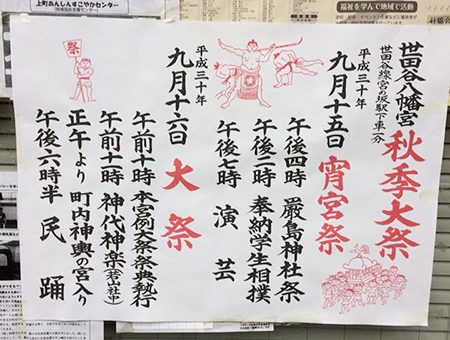 世田谷八幡宮
世田谷線宮の坂駅下車一分
秋季大祭
平成三十年
九月十五日
宵宮祭
午後四時 厳島神社祭
午後二時 奉納学生相撲
午後七時 演芸
平成三十年
九月十六日
大祭
午前十時 本宮例大祭祭典執行
午前十時 神代神楽(若山社中)
正午より 町内神輿の宮入り
午後六時半 民踊
祭
上町あんしんすこやかセンター
福祉を学んで地域で活動